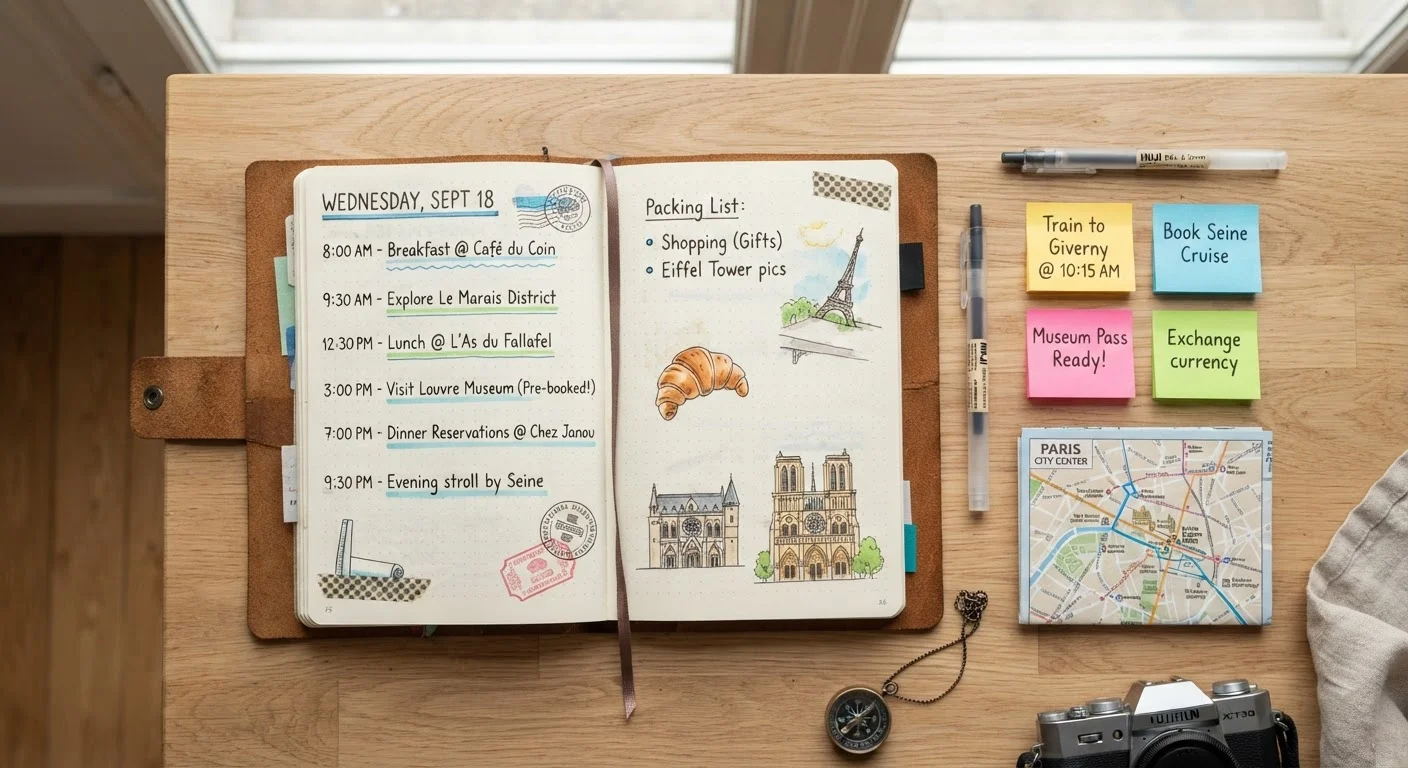 WEDNESDAY, SEPT 18
8:00 AM - Breakfast @ Café du Coin
9:30 AM - Explore Le Marais District
12:30 PM - Lunch @ L'As du Fallafel
3:00 PM - Visit Louvre Museum (Pre-booked!)
7:00 PM - Dinner Reservations @ Chez Janou
9:30 PM - Evening stroll by Seine
Packing List:
• Shopping (Gifts)
• Eiffel Tower pics
Train to
Giverny
@ 10:15 AM
Book Seine
Cruise
Museum Pass
Ready!
Exchange
currency
PARIS
CITY CENTER
FUJIFILM